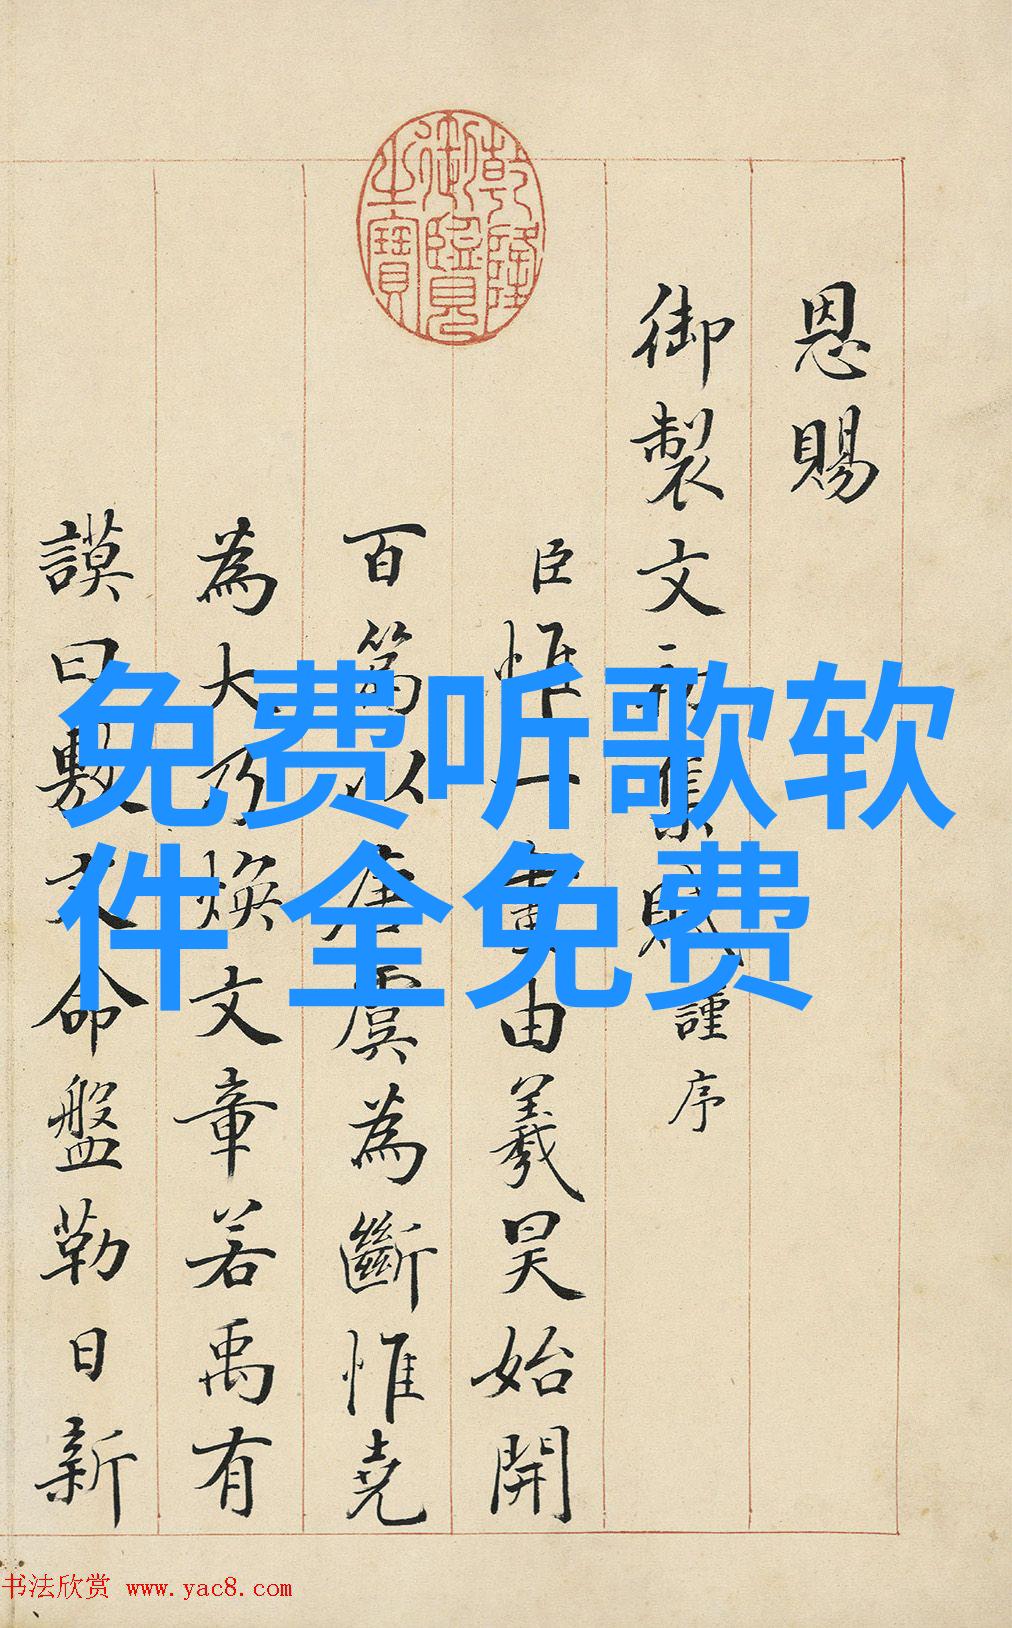 乾隆御覽之寶
恩賜
御製文初集賦謹序
臣惟一畫由羲昊始開
百篇以唐虞為斷惟堯
為大乃煥文章若禹有
謨曰敷文命盤勒日新
免费听歌软
件 全免费
书法欣赏 www.yac8.com